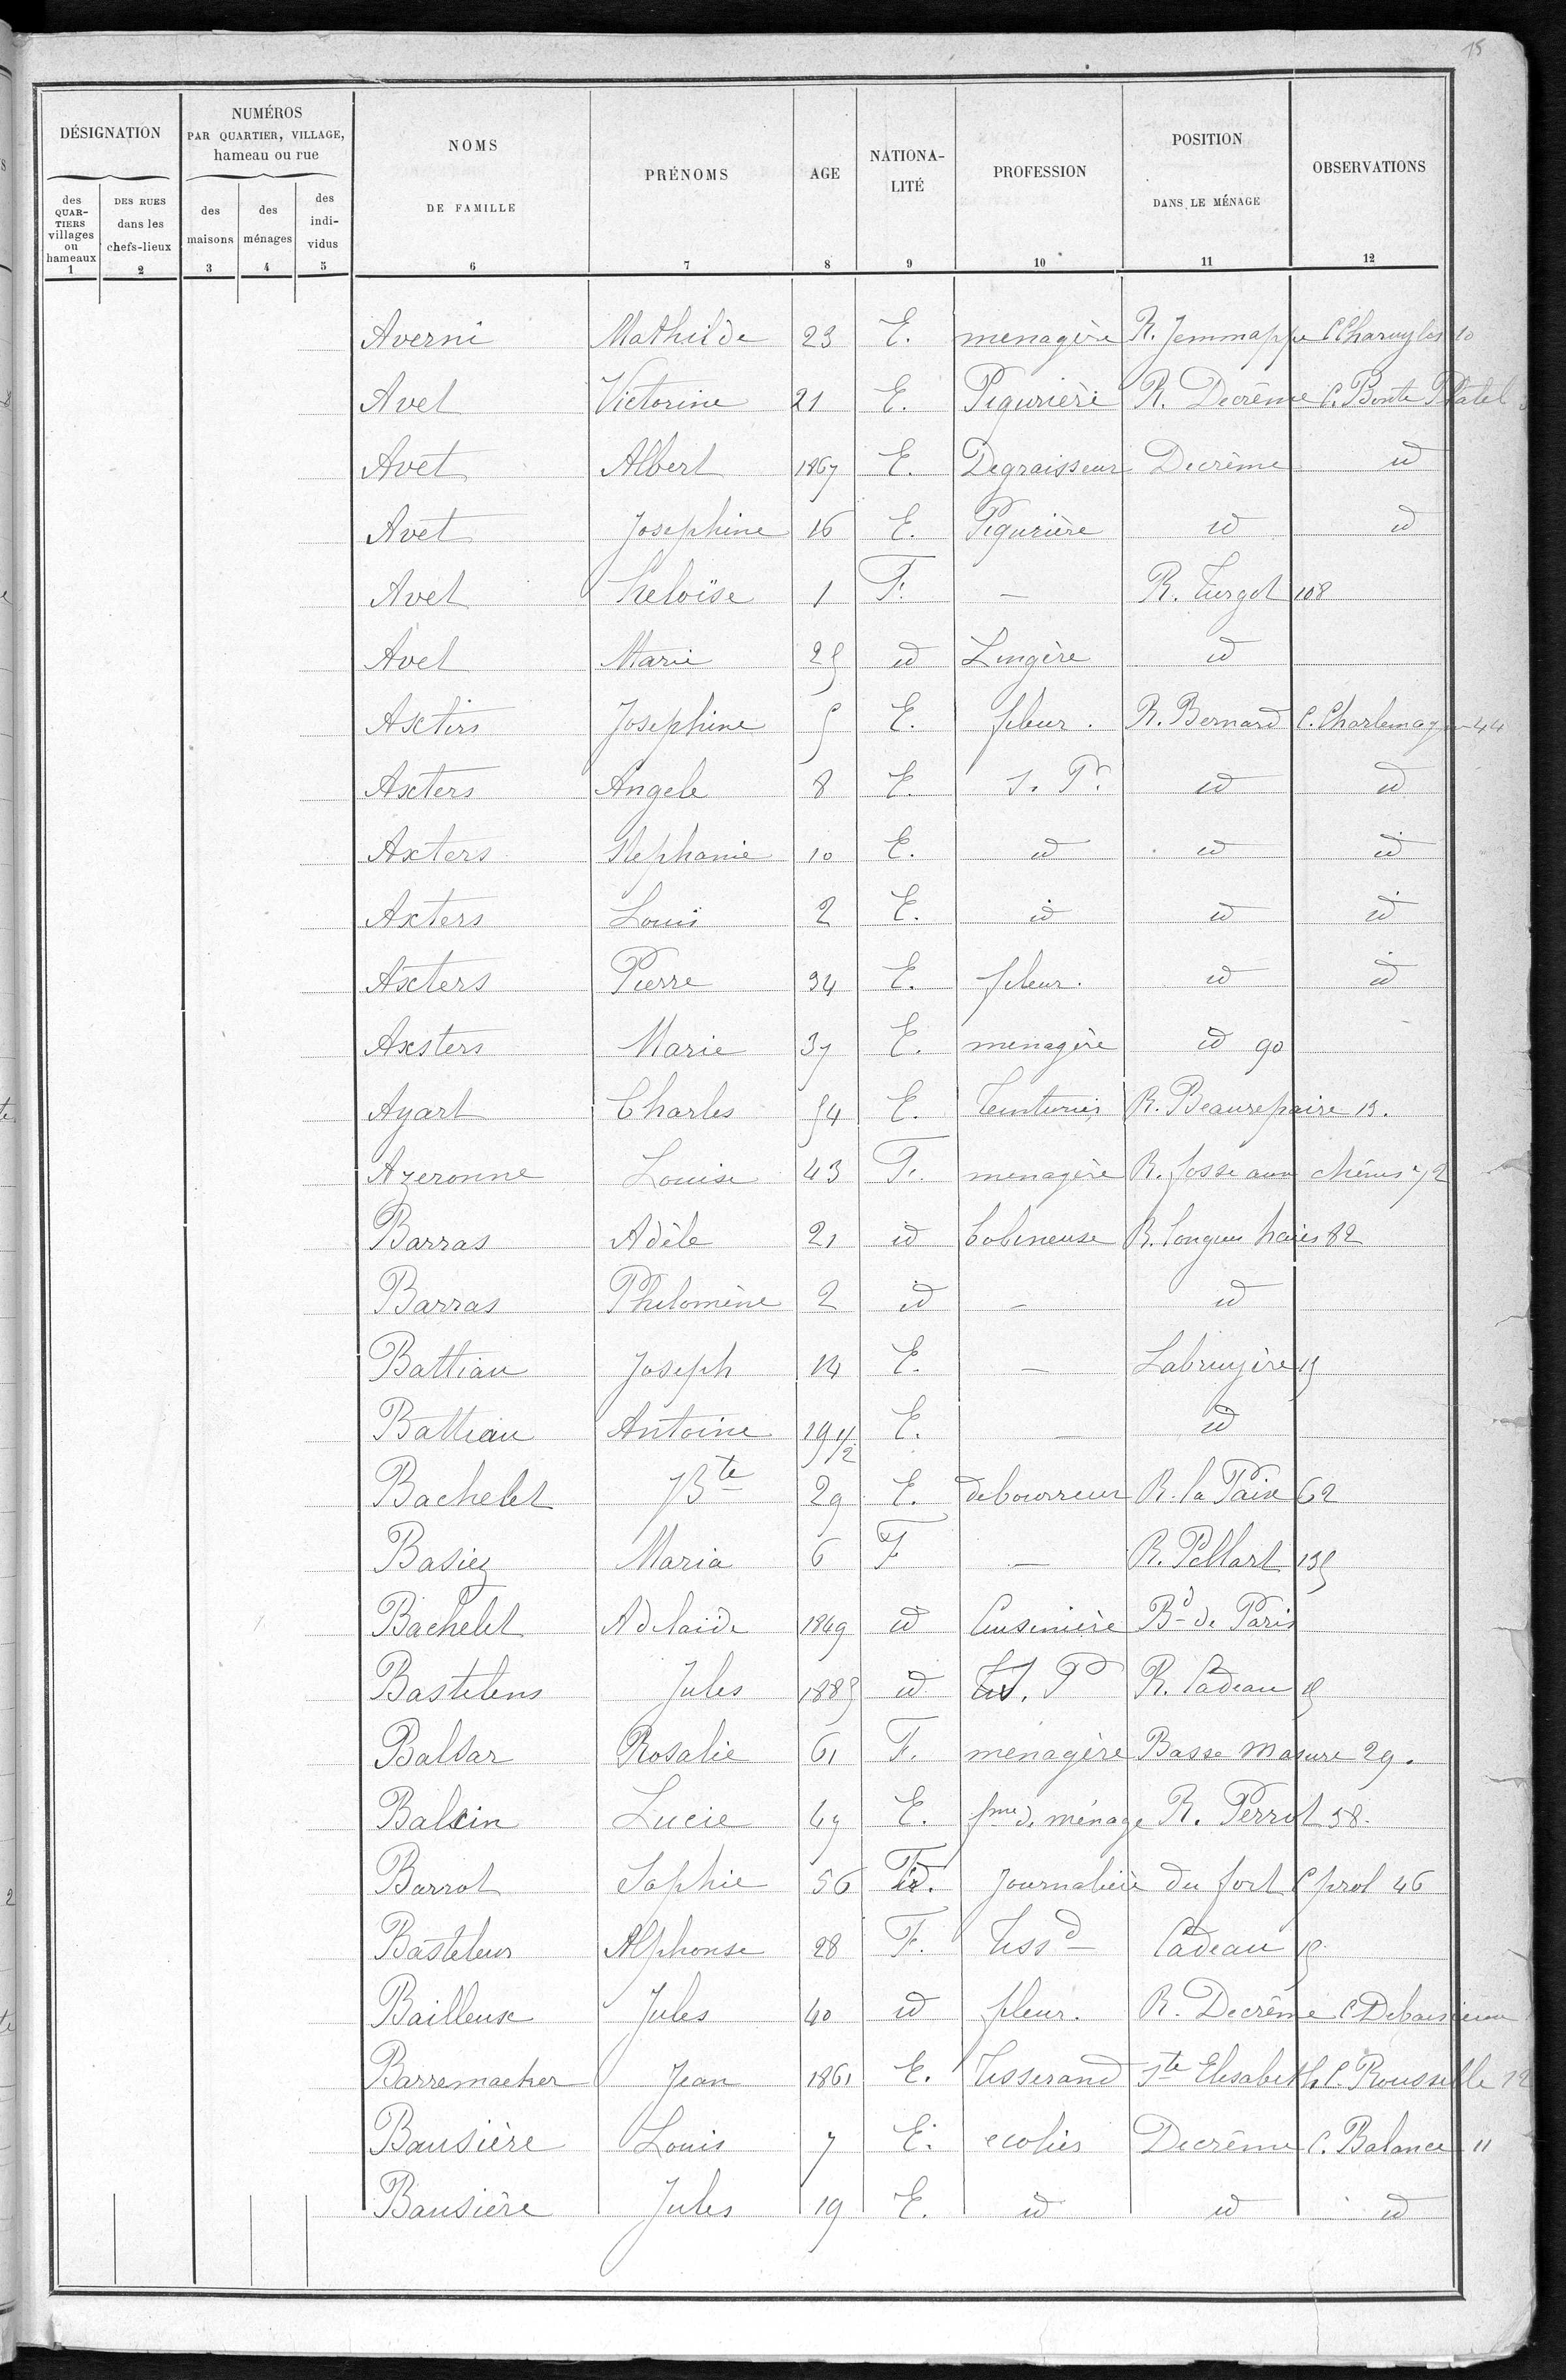 15
DÉSIGNATION
NUMÉROS
PAR QUARTIER, VILLAGE,
hameau ou rue
NOMS
DE FAMILLE
PRÉNOMS
AGE
NATIONA-
LITÉ
PROFESSION
POSITION
DANS LE MÉNAGE
OBSERVATIONS
des
QUAR-
TIERS
villages
ou
hameaux
DES RUES
dans les
chefs-lieux
des
maisons
des
ménages
des
indi-
vidus
1 2 3 4 5 6 7 8 9 10 11 12
Averni Mathilde 23 E. menagère R. Jemmappe 10
Avet Victorine 21 E. Piqurière R. Decrême C. Bonte Platel
Avet Albert 1867 E. Degraisseur Decrême id
Avet Josephine 16 E. Piqurière id id
Avet Heloïse 1 F. — R. Turgot 108
Avet Marie 25 id Lingère id
Axters Josephine 5 E. fileur. R. Bernard C. Charlemagne 44
Axters Angele 8 E. S. Pr. id id
Axters Stephanie 10 E. id id id
Axters Louis 2 E. id id id
Axters Pierre 34 E. fileur. id id
Axsters Marie 37 E. menagère id 90
Ayart Charles 54 E. Teinturier R. Beaurepaire 13.
Azeronne Louise 43 F. menagère R. fosse aux chênes 72
Barras Adèle 21 id bobineuse R. longues haies 82
Barras Philomène 2 id — id
Battiau Joseph 14 E. — Labruyère 15
Battiau Antoine 19 1/2 E. — id
Bachelet JBte 29 E. debourreur R. la Paix 62
Basiez Maria 6 F — R. Pellart 135
Bachelet Adelaide 1849 id Cuisinière Bd de Paris
Bastelens Jules 1885 id S. P R. Cadeau 15
Balsar Rosalie 61 F. menagère Basse Masure 29.
Balcin Lucie 67 E. fme de ménage R. Perrot 58.
Barrot Sophie 56 F. Journalière du fort C prol 46
Basteleus Alphonse 28 F. Tissd Cadeau 15
Bailleux Jules 40 id fileur. R. Decrême C Debaisieux
Barremacker Jean 1861 E. Tisserand Ste Elisabeth C. Rousselle 12
Bausière Louis 7 E. ecolier Decrême C. Balance 11
Bausière Jules 19 E. id id id